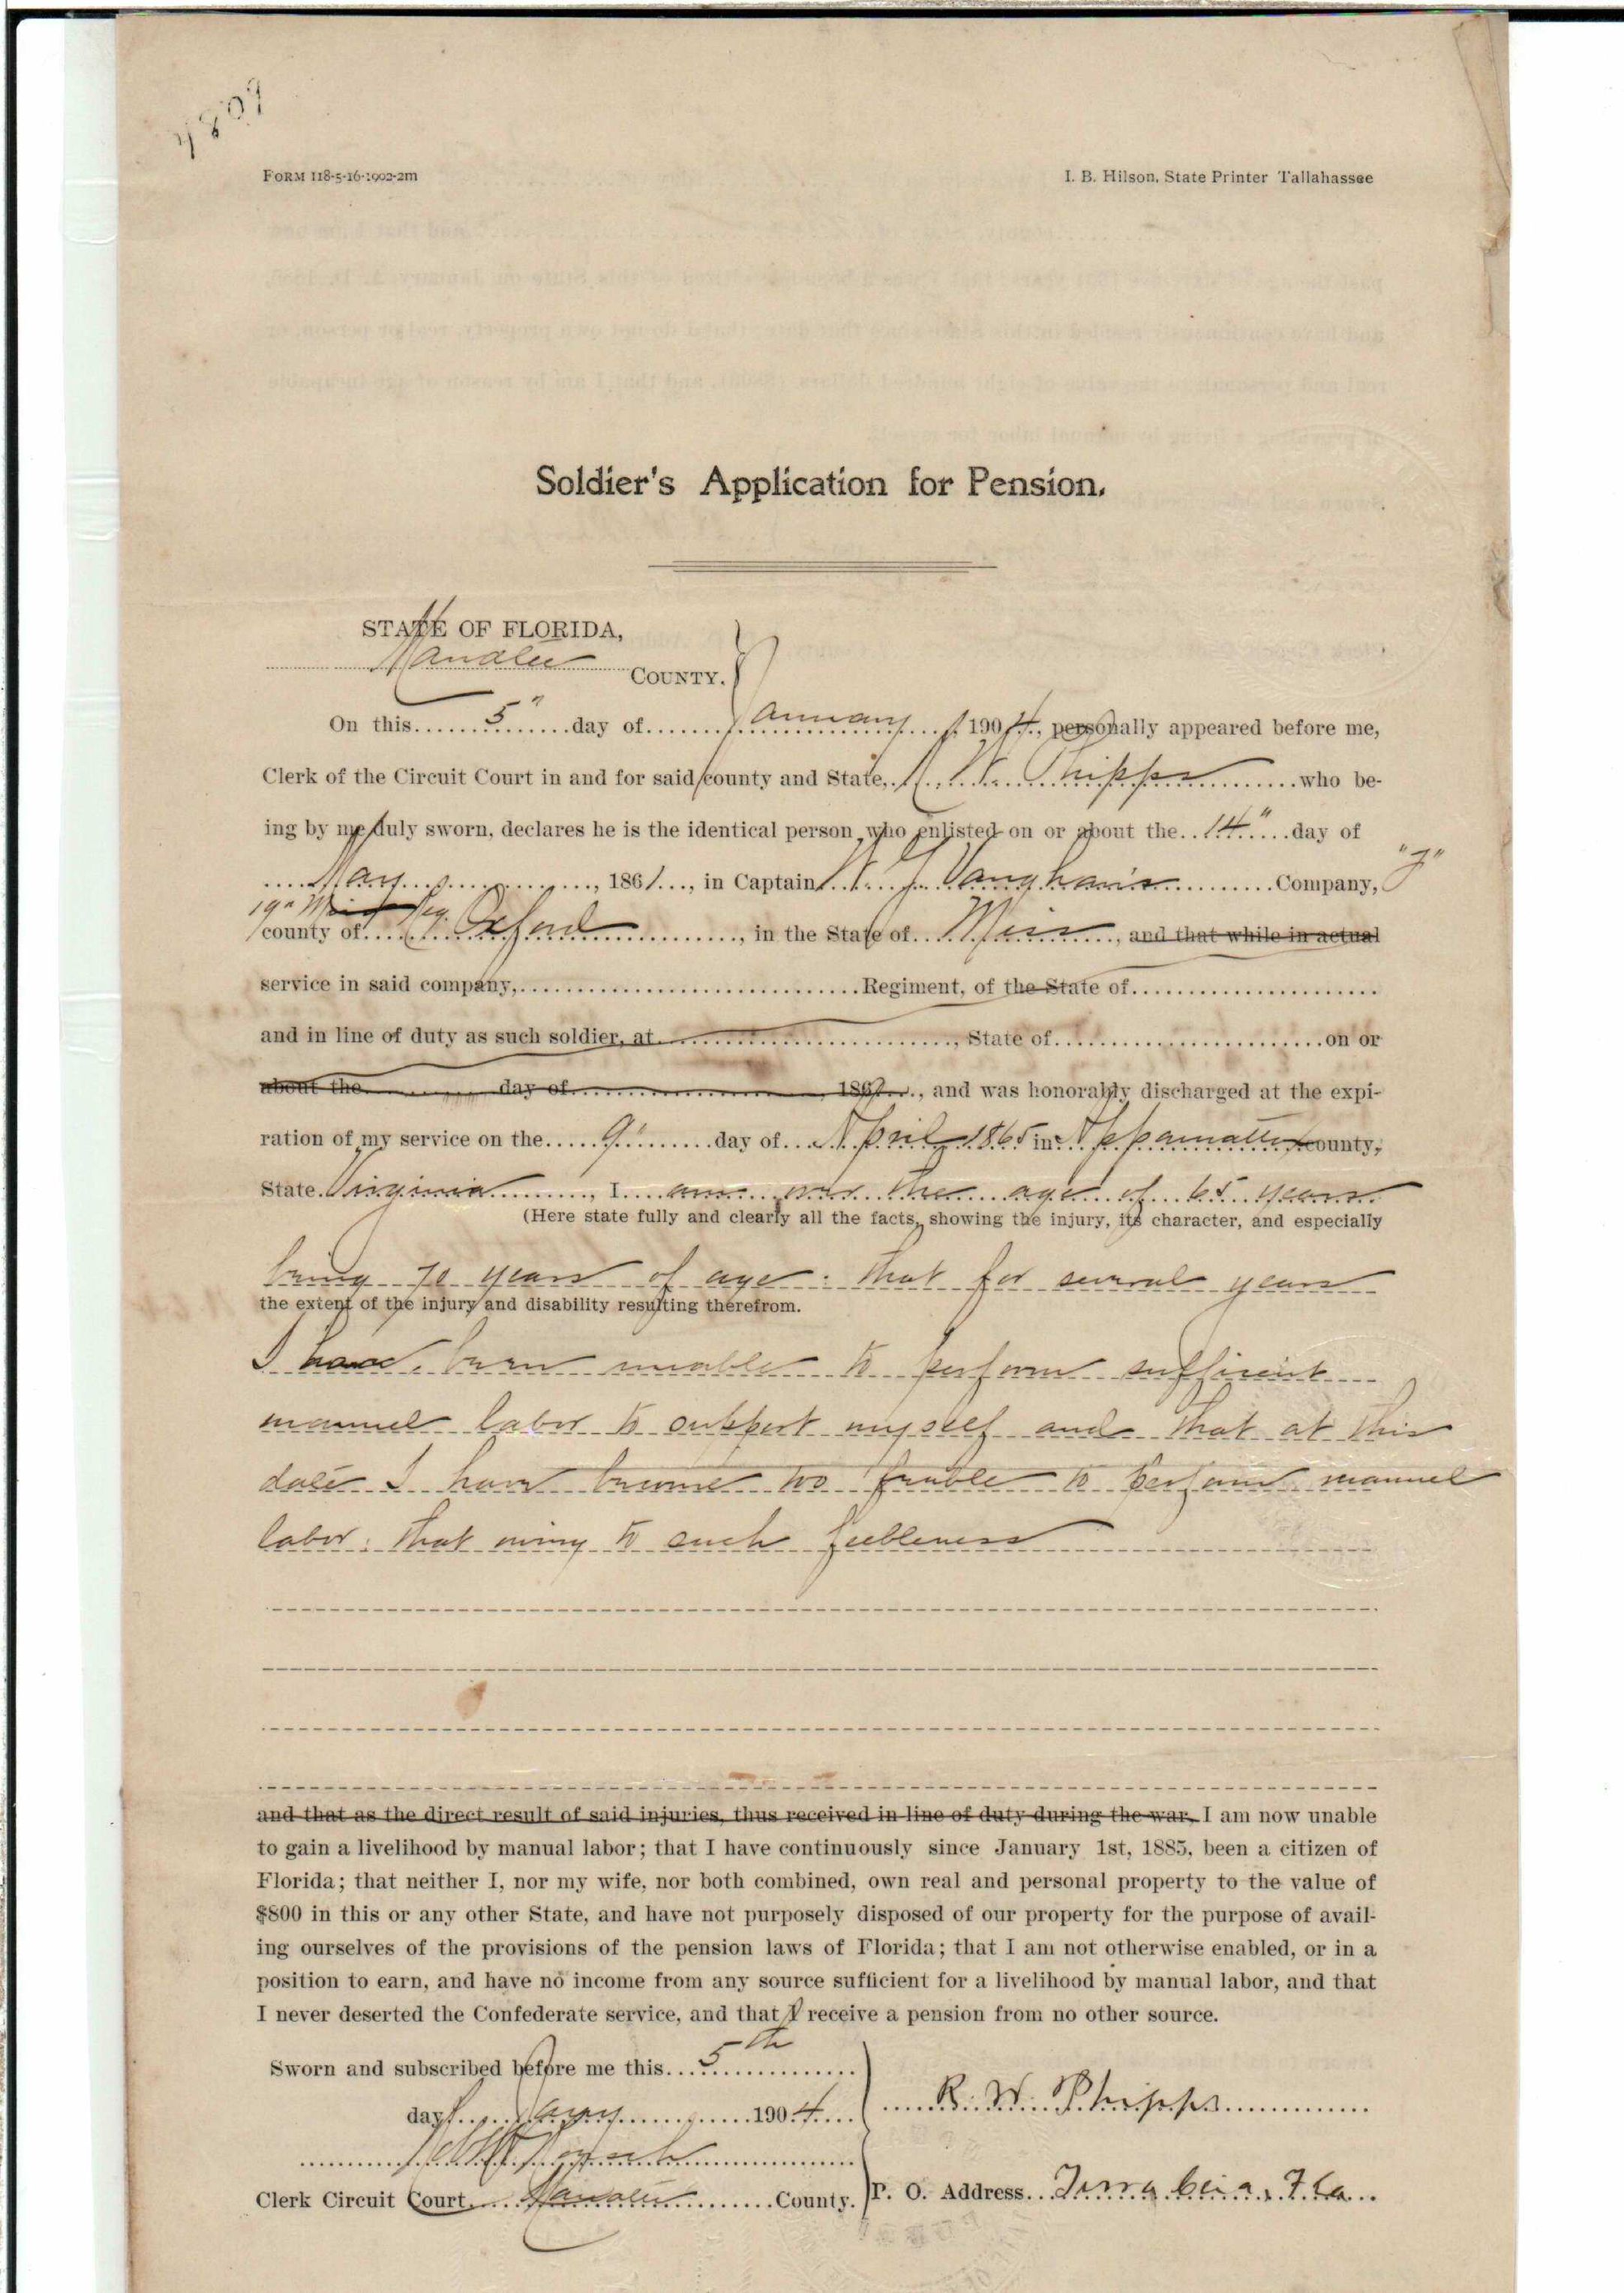 4809
FORM 118-5-16-1902-2m
I. B. Hilson, State Printer Tallahassee
Soldier's Application for Pension.
STATE OF FLORIDA,
Manatee COUNTY.
On this 5" day of January 1904, personally appeared before me,
Clerk of the Circuit Court in and for said county and State, R. W. Phipps who be-
ing by me duly sworn, declares he is the identical person who enlisted on or about the 14" day of
May, 1861, in Captain Vaughan's Company,
19" Miss Reg.
county of Oxford, in the State of Miss, and that while in actual
service in said company, Regiment, of the State of
and in line of duty as such soldier, at, State of on or
about the day of 186, and was honorably discharged at the expi-
ration of my service on the 9" day of April 1865 in Appamattox county,
State Virginia, I am over the age of 65 years
(Here state fully and clearly all the facts, showing the injury, its character, and especially
being 70 years of age. that for several years
the extent of the injury and disability resulting therefrom.
I have been unable to perform sufficient
manuel labor to support myself and that at this
date I have become too feeble to perform manuel
labor. that owing to such feebleness
and that as the direct result of said injuries, thus received in line of duty during the war, I am now unable
to gain a livelihood by manual labor; that I have continuously since January 1st, 1885, been a citizen of
Florida; that neither I, nor my wife, nor both combined, own real and personal property to the value of
$800 in this or any other State, and have not purposely disposed of our property for the purpose of avail-
ing ourselves of the provisions of the pension laws of Florida; that I am not otherwise enabled, or in a
position to earn, and have no income from any source sufficient for a livelihood by manual labor, and that
I never deserted the Confederate service, and that I receive a pension from no other source.
Sworn and subscribed before me this 5th
day Jany 1904
R. W. Phipps
Clerk Circuit Court Manatee County.
P. O. Address Terra ceia, Fla